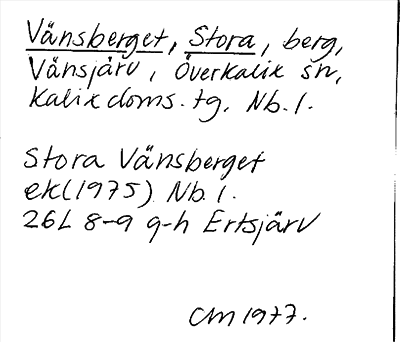 Vänsberget, Stora, berg,
Vänsjärv, Överkalix sn,
Kalix doms. tg. Nb. l.
Stora Vänsberget
ek(1975) Nb. l.
26L 8-9 g-h Ertsjärv
CM 1977.